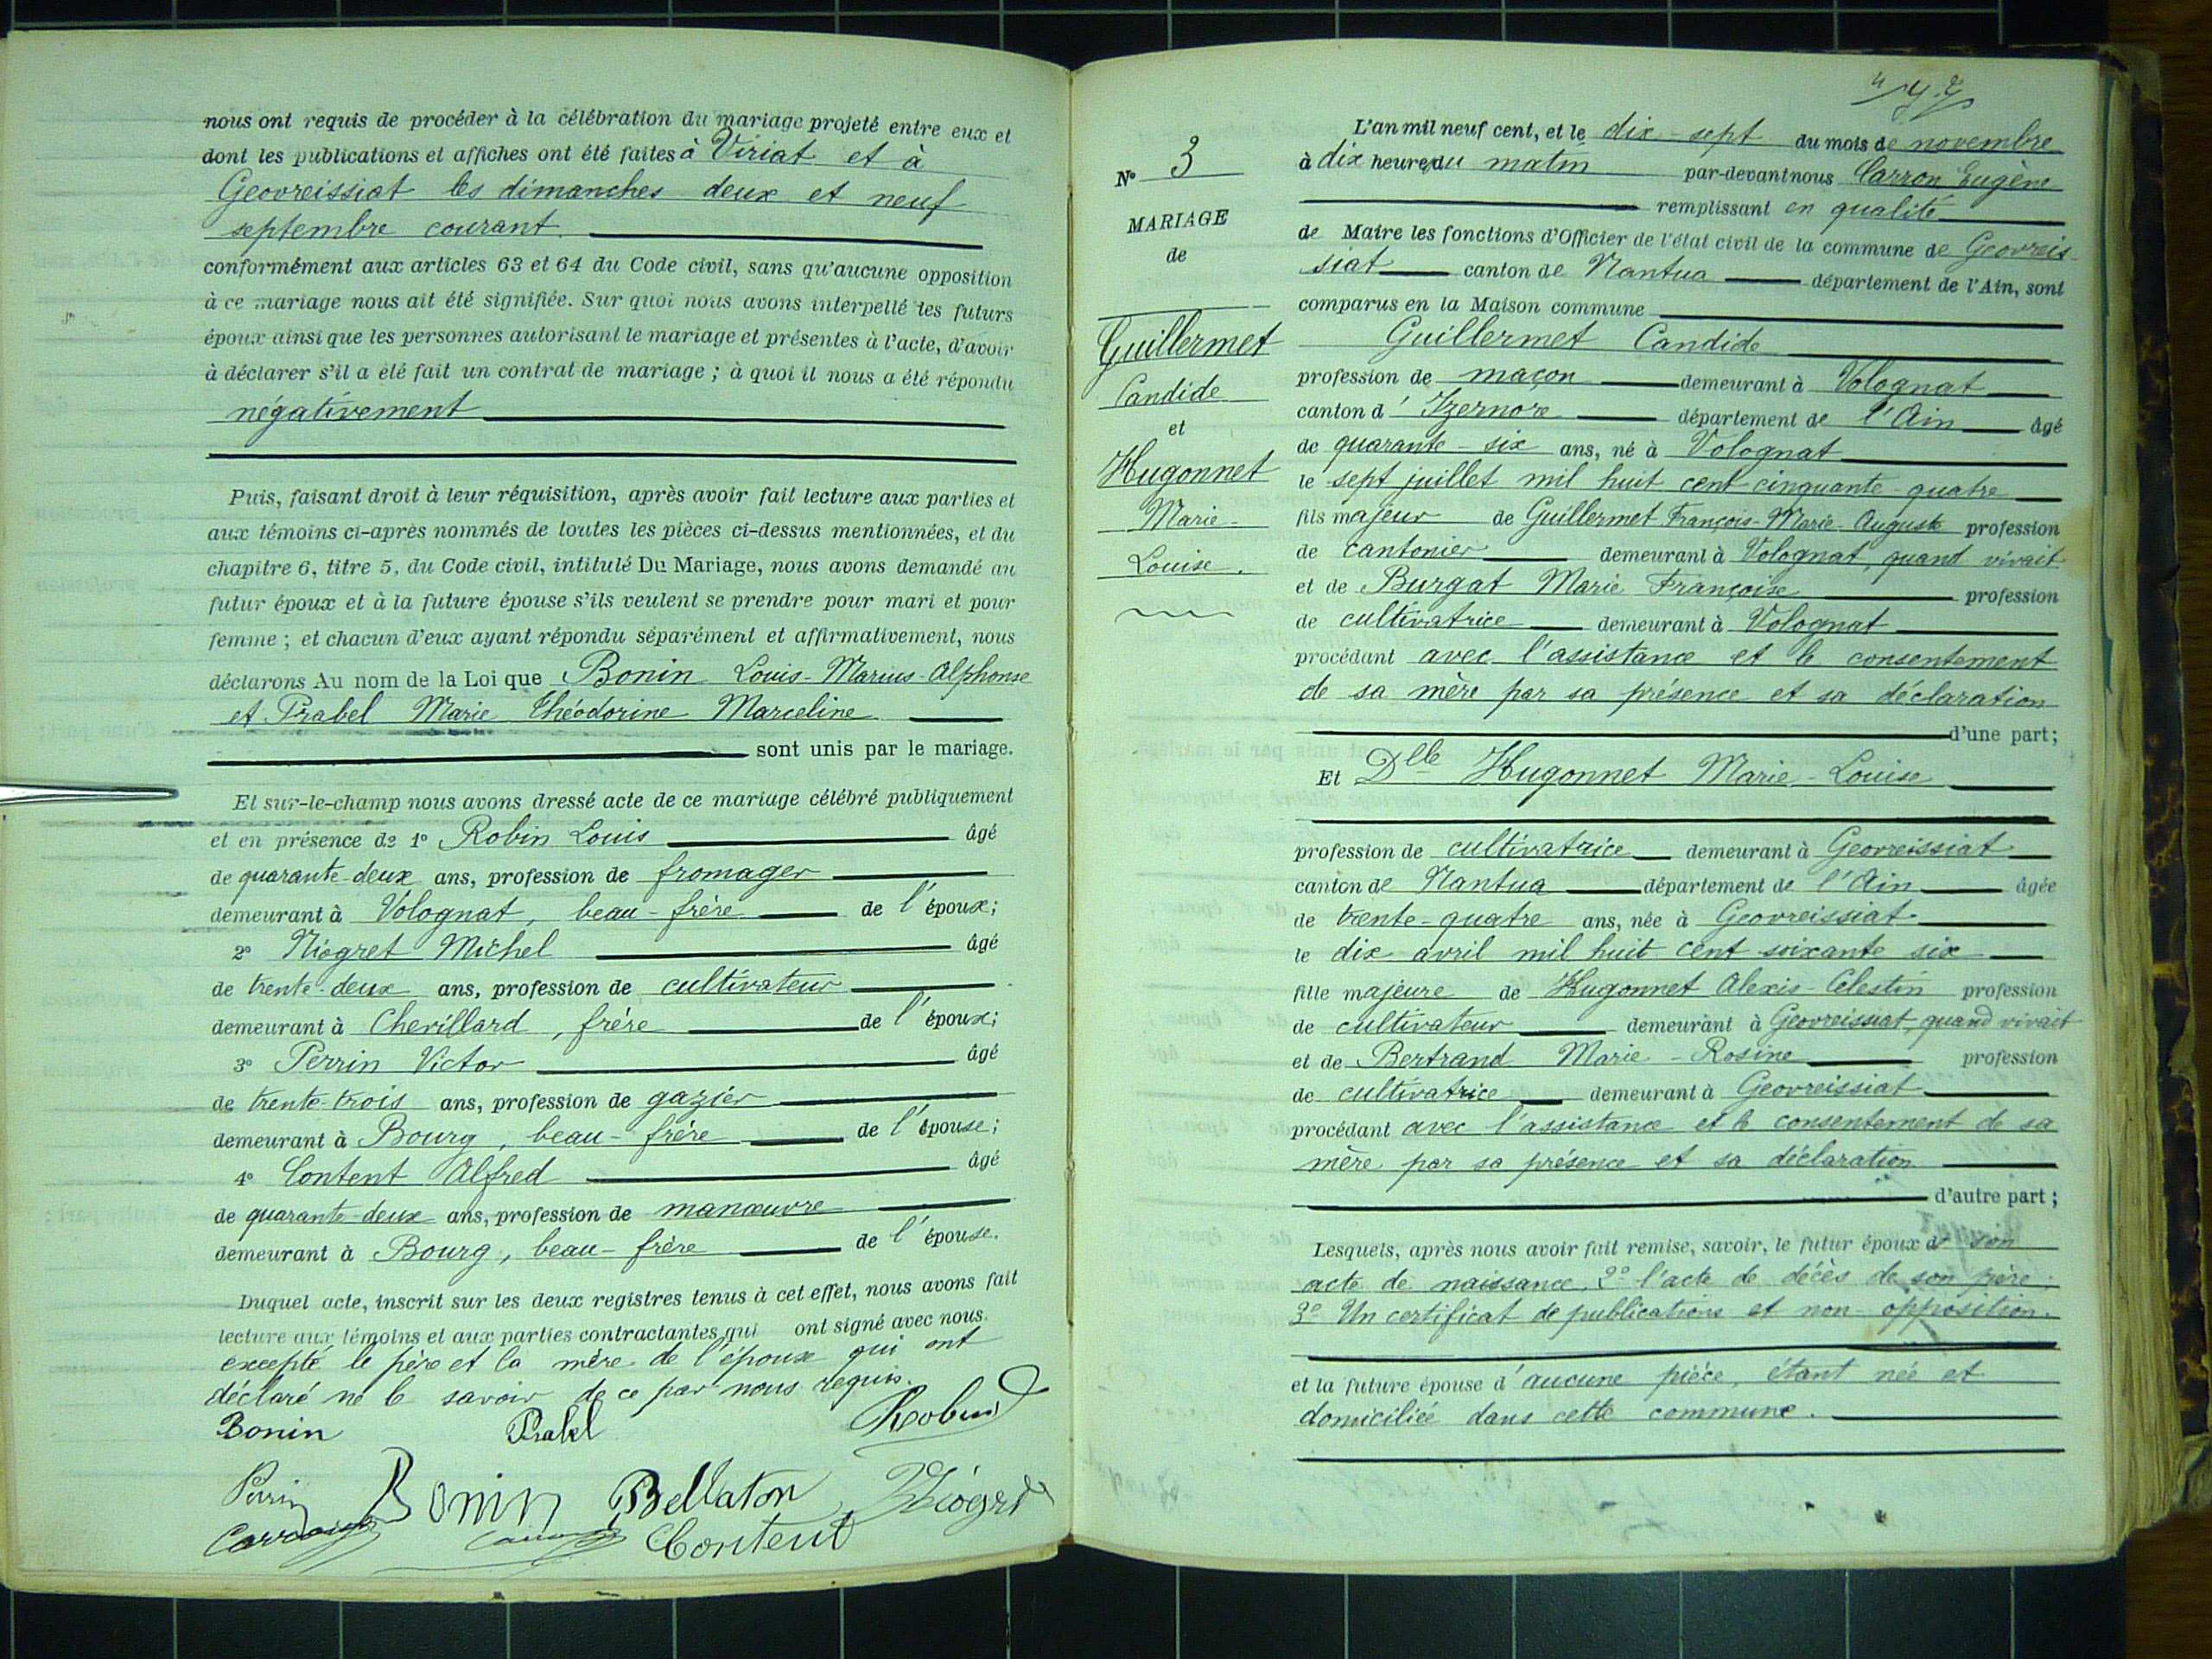 nous ont requis de procéder à la célébration du mariage projeté entre eux et
dont les publications et affiches ont été faites à Viriat et à
Geovreissiat les dimanches deux et neuf
septembre courant.
conformément aux articles 63 et 64 du Code civil, sans qu'aucune opposition
à ce mariage nous ait été signifiée. Sur quoi nous avons interpellé les futurs
époux ainsi que les personnes autorisant le mariage et présentes à l'acte, d'avoir
à déclarer s'il a été fait un contrat de mariage ; à quoi il nous a été répondu
négativement
Puis, faisant droit à leur réquisition, après avoir fait lecture aux parties et
aux témoins ci-après nommés de toutes les pièces ci-dessus mentionnées, et du
chapitre 6, titre 5, du Code civil, intitulé Du Mariage, nous avons demandé au
futur époux et à la future épouse s'ils veulent se prendre pour mari et pour
femme ; et chacun d'eux ayant répondu séparément et affirmativement, nous
déclarons Au nom de la Loi que Bonin Louis-Marius-Alphonse
et Prabel Marie Théodorine Marceline
sont unis par le mariage.
Et sur-le-champ nous avons dressé acte de ce mariage célébré publiquement
et en présence de 1° Robin Louis âgé
de quarante-deux ans, profession de fromager
demeurant à Volognat, beau-frère de l'époux;
2° Niogret Michel âgé
de trente-deux ans, profession de cultivateur
demeurant à Chevillard, frère de l'époux;
3° Perrin Victor âgé
de trente-trois ans, profession de gazier
demeurant à Bourg, beau-frère de l'épouse;
4° Content Alfred âgé
de quarante-deux ans, profession de manœuvre
demeurant à Bourg, beau-frère de l'épouse.
Duquel acte, inscrit sur les deux registres tenus à cet effet, nous avons fait
lecture aux témoins et aux parties contractantes qui ont signé avec nous.
excepté le père et la mère de l'épouse qui ont
déclaré ne le savoir de ce par nous requis.
Bonin Prabel Robin
Perrin Bonin Bellaton Niogret
Content
N° 3
MARIAGE
de
Guillermet
Candide
et
Hugonnet
Marie-
Louise.
L'an mil neuf cent, et le dix-sept du mois de novembre
à dix heures du matin par-devant nous Carron Eugène
remplissant en qualité
de Maire les fonctions d'Officier de l'état civil de la commune de Geovreis-
siat canton de Nantua département de l'Ain, sont
comparus en la Maison commune
Guillermet Candide
profession de maçon demeurant à Volognat
canton d'Izernore département de l'Ain âgé
de quarante-six ans, né à Volognat
le sept juillet mil huit cent cinquante-quatre
fils majeur de Guillermet François-Marie-Auguste profession
de cantonier demeurant à Volognat, quand vivait
et de Burgat Marie Françoise profession
de cultivatrice demeurant à Volognat
procédant avec l'assistance et le consentement
de sa mère par sa présence et sa déclaration
d'une part;
Et Dlle Hugonnet Marie-Louise
profession de cultivatrice demeurant à Geovreissiat
canton de Nantua département de l'Ain âgée
de trente-quatre ans, née à Geovreissiat
le dix avril mil huit cent soixante six
fille majeure de Hugonnet Alexis-Célestin profession
de cultivateur demeurant à Geovreissiat, quand vivait
et de Bertrand Marie-Rosine profession
de cultivatrice demeurant à Geovreissiat
procédant avec l'assistance et le consentement de sa
mère par sa présence et sa déclaration
d'autre part ;
Lesquels, après nous avoir fait remise, savoir, le futur époux de son
acte de naissance, 2° l'acte de décès de son père;
3° Un certificat de publications et non-opposition.
et la future épouse d'aucune pièce, étant née et
domiciliée dans cette commune.